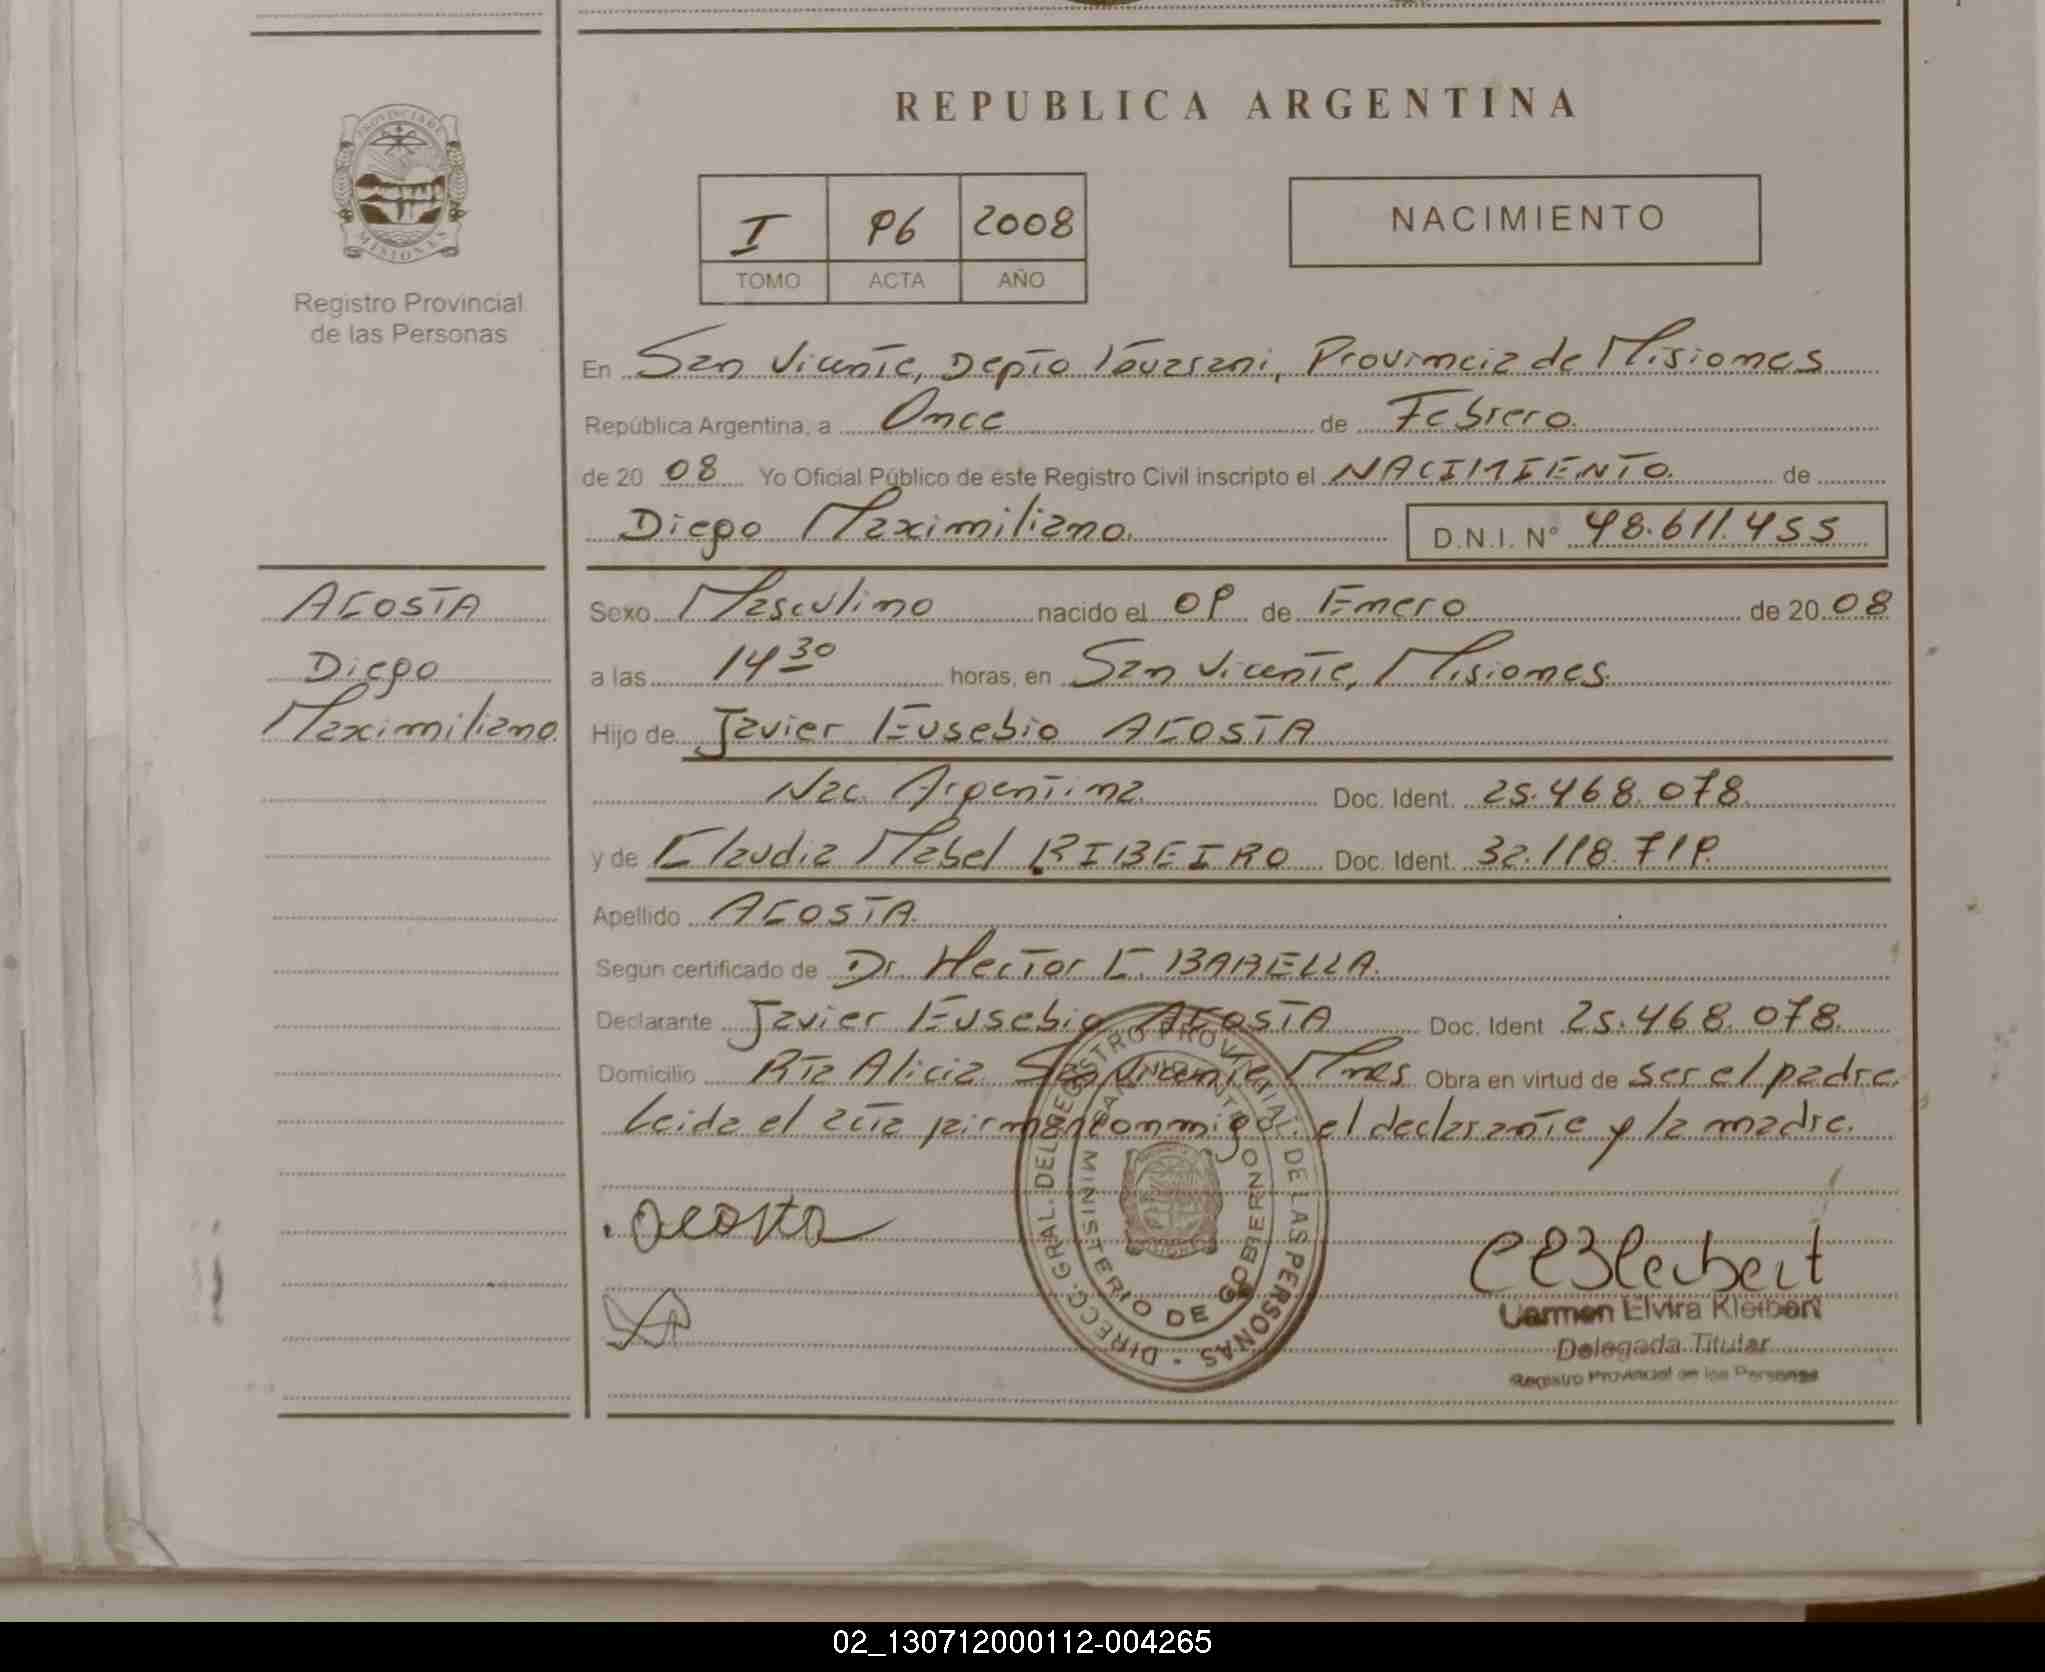 REPUBLICA ARGENTINA
PROVINCIA DE
MISIONES
Registro Provincial
de las Personas
I 96 2008
TOMO ACTA AÑO
NACIMIENTO
En San Vicente, Depto Guarani, Provincia de Misiones
República Argentina, a Once de Febrero
de 20 08 Yo Oficial Público de este Registro Civil inscripto el NACIMIENTO de
Diego Maximiliano D.N.I. N° 48.611.455
ACOSTA
Diego
Maximiliano
Sexo Masculino nacido el 09 de Enero de 20 08
a las 14 30 horas, en San Vicente, Misiones
Hijo de Javier Eusebio ACOSTA
Nac. Argentina Doc. Ident. 25.468.078
y de Claudia Mabel RIBEIRO Doc. Ident. 32.118.719
Apellido ACOSTA
Según certificado de Dr. Hector E.
Declarante Javier Eusebio ACOSTA Doc. Ident 25.468.078
Domicilio Rta Alicia San Vicente Mnes Obra en virtud de ser el padre.
Leida el acta firman conmigo el declarante y la madre.
acosta
DIRECC. GRAL. DEL REGISTRO PROVINCIAL DE LAS PERSONAS
MINISTERIO DE GOBIERNO
SAN VICENTE
Carmen Elvira Kleibert
Delegada Titular
Registro Provincial de las Personas
02_130712000112-004265